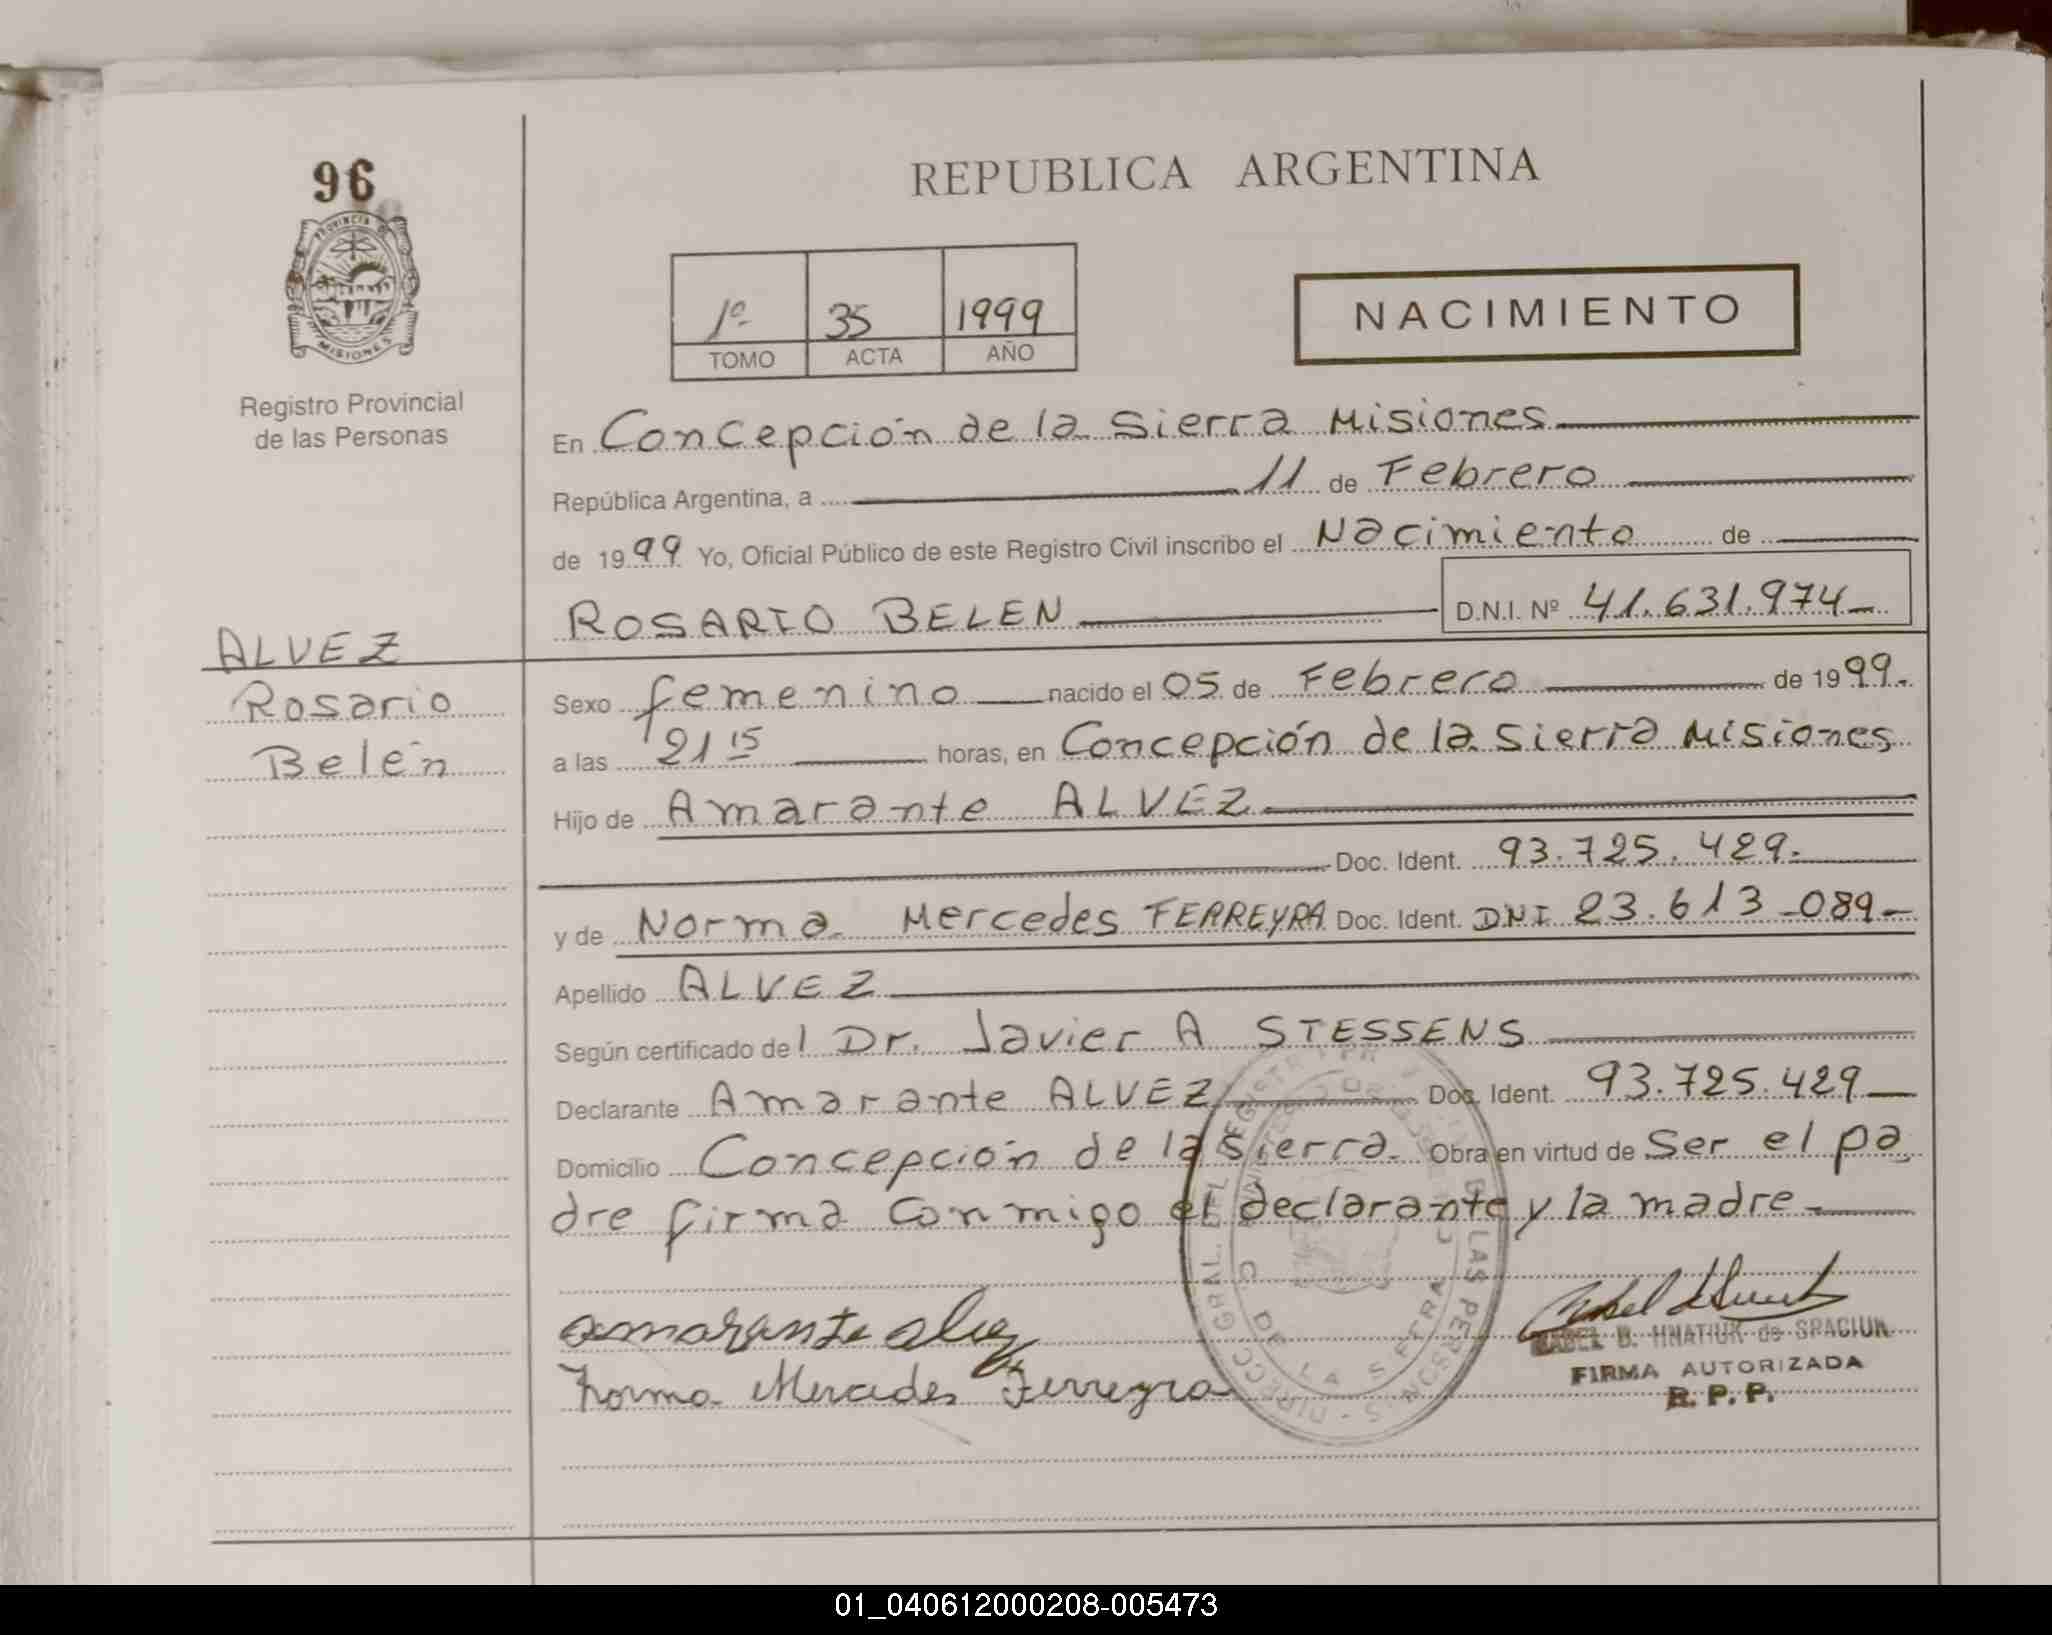 96
PROVINCIA DE
MISIONES
Registro Provincial
de las Personas
ALVEZ
Rosario
Belén
REPUBLICA ARGENTINA
1º 35 1999
TOMO ACTA AÑO
NACIMIENTO
En Concepción de la Sierra Misiones
República Argentina, a 11 de Febrero
de 1999 Yo, Oficial Público de este Registro Civil inscribo el Nacimiento de
ROSARIO BELEN D.N.I. Nº 41.631.974
Sexo femenino nacido el 05 de Febrero de 1999.
a las 21 15 horas, en Concepción de la Sierra Misiones
Hijo de Amarante ALVEZ
Doc. Ident. 93.725.429.
y de Norma Mercedes FERREYRA Doc. Ident. DNI 23.613.089
Apellido ALVEZ
Según certificado del Dr. Javier A STESSENS
Declarante Amarante ALVEZ Doc. Ident. 93.725.429
Domicilio Concepción de la Sierra. Obra en virtud de Ser el pa
dre firma conmigo el declarante y la madre
amarante alvez
Norma Mercedes Ferreyra
B. HNATIUK de SPACIUK
FIRMA AUTORIZADA
R. P. P.
DE LAS PERSONAS
C. DE LA SIERRA
01_040612000208-005473